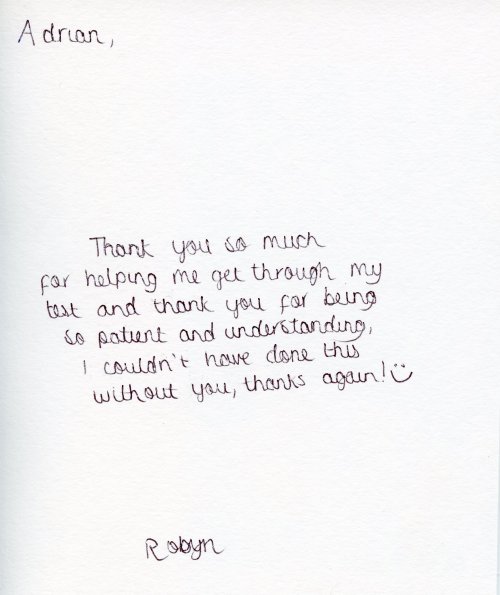 Adrian,
Thank you so much
for helping me get through my
test and thank you for being
so patient and understanding,
I couldn't have done this
without you, thanks again! :)
Robyn